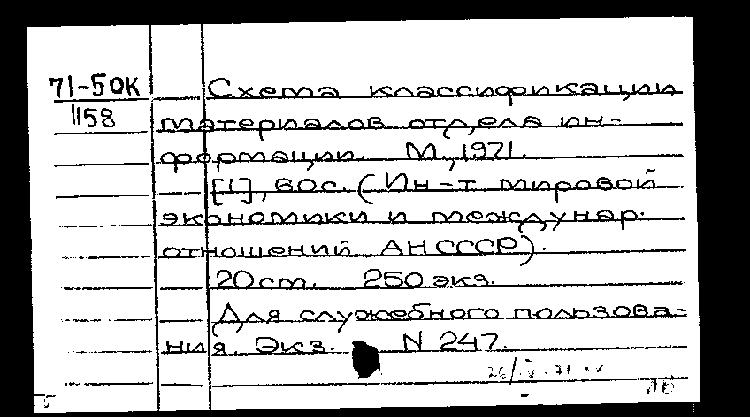 71-5ОК
1158
Схема классификации
материалов отдела ин-
формации. М., 1971.
[1], 60с. (Ин-т мировой
экономики и междунар.
отношений АН СССР).
20 cm. 250 экз.
Для служебного пользова-
ния. Экз. N 247.